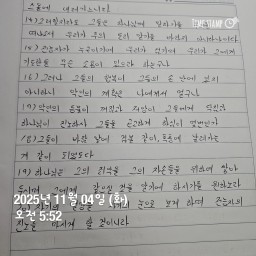 스올에 내려가느니라
14) 그러할지라도 그들은 하나님께 말하기를
떠나소서 우리가 주의 도리 알기를 바라지 아니하나이다
15) 전능자가 누구이기에 우리가 섬기며 우리가 그에게
기도한들 무슨 소용이 있으랴 하는구나
16) 그러나 그들의 행복이 그들의 손 안에 있지
아니하니 악인의 계획은 나에게서 멀구나
17) 악인의 등불이 꺼짐과 재앙이 그들에게
하나님이 진노하사 그들을 곤고하게
18) 그들이 바람 앞에 검불 같이, 폭풍에 날려가는
겨 같이 되었도다
19) 하나님은 그의 죄악을 그의 자손들을 위하여 쌓아
두시며 그에게 갚으실 것을 알게
하시기를 원하노라
눈으로 보게 하며 전능자의
진노를 마시게 할 것이니라
2025년 11월 04일 (화)
오전 5:52
TIMESTAMP